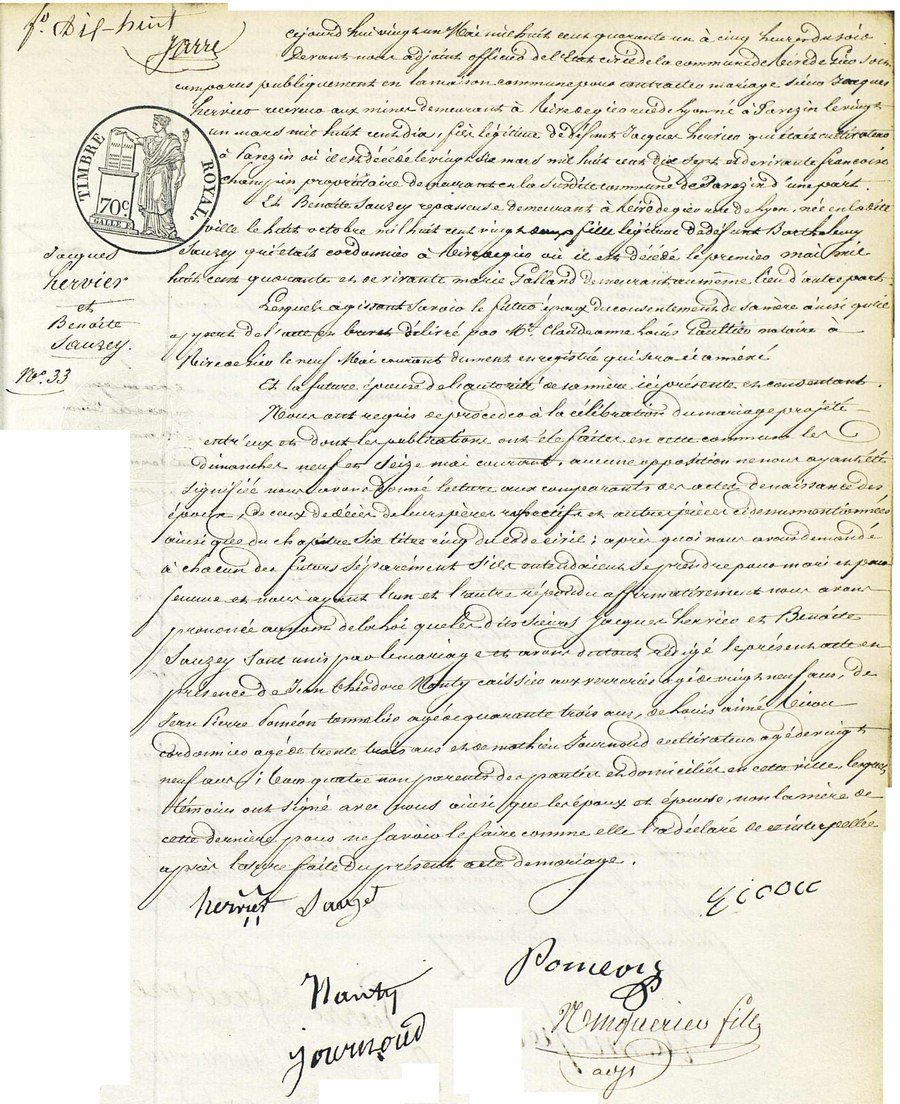 fo. Dix-huit
Jarre
TIMBRE ROYAL.
70c
GALLE F.
Jacques
hervier
et
Benoîte
Sauzey.
No. 33
cejourd'hui vingt un Mai mil huit cent quarante un à cinq heures du soir
Devant nous adjoint officier de l'Etat civil de la commune de Rive de Gier sont
comparus publiquement en la maison commune pour contracter mariage sieur Jacques
hervier receveur aux mines demeurant à Rive de gier rue de Lyon né à Parezin le vingt
un mars mil huit cent dix, fils légitime de défunt Jacques hervier qui était cultivateur
à Parezin où il est décédé le vingt six mars mil huit cent dix sept et de vivante françoise
champin propriétaire demeurant en la susdite commune de Parezin d'une part.
Et Benoîte Sauzey repasseuse demeurant à Rive de gier rue de Lyon, née en la dite
ville le huit octobre mil huit cent vingt fille légitime de défunt Barthelemy
Sauzey qui était cordonnier à Rive de gier où il est décédé le premier mai mil
huit cent quarante et de vivante marie Galland demeurant au même lieu d'autre part.
Lesquels agissant savoir le futur époux du consentement de sa mère ainsi qu'il
appert de l'acte en brevet délivré par Me. Claude anne Louis Gaultier notaire à
Rive de Gier le neuf Mai courant dument enregistré qui sera ici annéxé
Et la future épouse de l'autorité de sa mère, ici présente et consentant.
Nous ont requis de procéder à la célébration du mariage projeté
entr'eux et dont les publications ont été faites en cette commune les
dimanches neuf et seize mai courant, aucune opposition ne nous ayant été
signifiée nous avons donné lecture aux comparants des actes de naissance des
époux, de ceux de décès de leurs pères respectifs et autres pièces ci dessus mentionnées
ainsi que du chapitre six titre cinq du code civil ; après quoi nous avons demandé
à chacun des futurs séparément s'ils entendaient se prendre pour mari et pour
femme et nous ayant l'un et l'autre répondu affirmativement nous avons
prononcé au nom de la loi que les dits sieurs Jacques hervier et Benoîte
Sauzey sont unis par le mariage et avons du tout rédigé le présent acte en
présence de Jean Théodore Nanty caissier aux verreries agé de vingt neuf ans, de
Jean Pierre Poméon tonnelier agé de quarante trois ans, de Louis aimé Ricou
cordonnier agé de trente trois ans et de mathieu Journoud cultivateur agé de vingt
neuf ans ; tous quatre non parents des parties et domiciliés en cette ville, lesquels
témoins ont signé avec nous ainsi que les époux et épouse, non la mère de
cette dernière pour ne savoir le faire comme elle l'a déclaré de ce interpellée
après lecture faite du présent acte de mariage.
hervier Sauzet
Ricou
Nanty
Pomeon
Journoud
fils
adjt